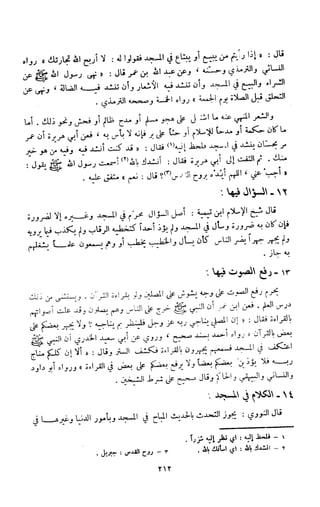 قال : « إذا رأيتم من يبيع أو يبتاع في المسجد فقولوا له : لا أربح الله تجارتك » رواه
النسائي والترمذي وحسنه . وعن عبد الله بن عمر قال : « نهى رسول الله ﷺ عن
الشراء والبيع في المسجد وأن تنشد فيه الأشعار وأن تنشد فيه الضالة ، ونهى عن
التحلق قبل الصلاة يوم الجمعة » رواه الخمسة وصححه الترمذي .
والشعر المنهي عنه ما اشتمل على هجو مسلم أو مدح ظالم أو فحش ونحو ذلك . أما
ما كان حكمة أو مدحاً للإسلام أو حثاً على بر فإنه لا بأس به ، فعن أبي هريرة أن عمر
مر بحسان ينشد في المسجد فلحظ إليه(١) فقال : « قد كنت أنشد فيه وفيه من هو خير
منك . ثم التفت إلى أبي هريرة فقال : أنشدك بالله(٢) أسمعت رسول الله ﷺ يقول :
« أجب عني ، اللهم أيده بروح القدس »(٣) قال : نعم » متفق عليه .
١٢ - السؤال فيها :
قال شيخ الإسلام ابن تيمية : أصل السؤال محرم في المسجد وغيره إلا لضرورة
فإن كان به ضرورة وسأل في المسجد ولم يؤذ أحداً كتخطيه الرقاب ولم يكذب فيما يرويه
ولم يجهر جهراً يضر الناس كأن يسأل والخطيب يخطب أو وهم يسمعون علماً يشغلهم
به جاز .
١٣ - رفع الصوت فيها :
يحرم رفع الصوت على وجه يشوش على المصلين ولو بقراءة القرآن . ويستثنى من ذلك
درس العلم . فعن ابن عمر أن النبي ﷺ خرج على الناس وهم يصلون وقد علت أصواتهم
بالقراءة فقال : « إن المصلي يناجي ربه عز وجل فلينظر بم يناجيه ؟ ولا يجهر بعضكم على
بعض بالقرآن » رواه أحمد بسند صحيح ، وروي عن أبي سعيد الخدري أن النبي ﷺ
اعتكف في المسجد فسمعهم يجهرون بالقراءة فكشف الستر وقال : « ألا إن كلكم مناج
ربه فلا يؤذين بعضكم بعضاً ولا يرفع بعضكم على بعض في القراءة » رواه أبو داود
والنسائي والبيهقي والحاكم وقال صحيح على شرط الشيخين .
١٤ - الكلام في المسجد :
قال النووي : يجوز التحدث بالحديث المباح في المسجد وبأمور الدنيا وغيرها في
١ - فلحظ إليه : أي نظر إليه شزراً .
٢ - أنشدك بالله : أي أسألك بالله . ٣ - روح القدس : جبريل .
٢١٢